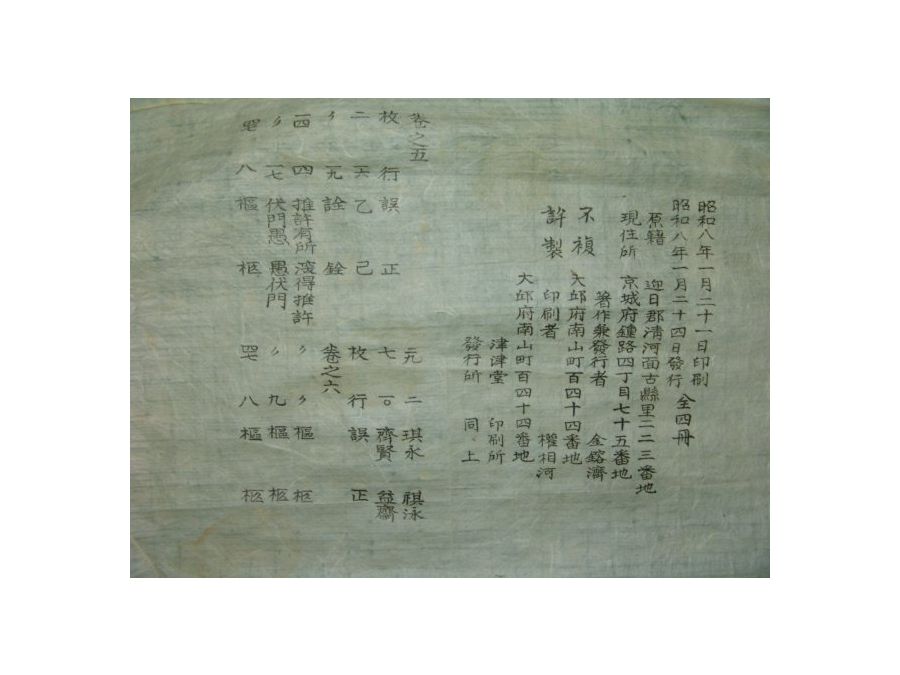 昭和八年一月二十一日印刷
昭和八年一月二十四日發行 全四冊
原籍 迎日郡淸河面古縣里二二三番地
現住所 京城府鍾路四丁目七十五番地
著作兼發行者 金鎔濟
不複 大邱府南山町百四十四番地
許製 印刷者 權相河
大邱府南山町百四十四番地
津津堂 印刷所
發行所 同上
卷之五
枚 行 誤 正
二 一六 乙 己
〃 一九 詮 銓
一四 四 推許有所 滾得推許
〃 一七 伏門愚 愚伏門
八 樞 柩
二 琪永 祺泳
七 一〇 齊賢 益齋
枚 行 誤 正
卷之六
〃 〃 樞 柩
〃 九 樞 柩
八 樞 柩